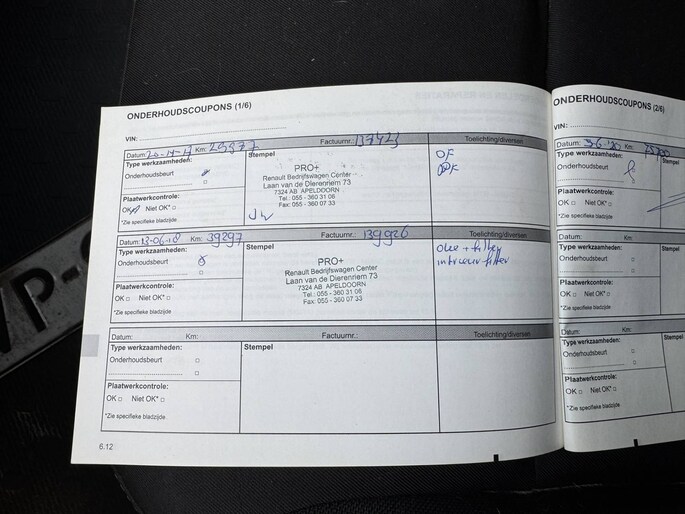 ONDERHOUDSCOUPONS (1/6)
VIN:
Datum: Km: Factuurnr.: Toelichting/diversen
Type werkzaamheden: Stempel
Onderhoudsbeurt
Plaatwerkcontrole:
OK Niet OK*
*Zie specifieke bladzijde
PRO+
Renault Bedrijfswagen Center
Laan van de Dierenriem 73
7324 AB APELDOORN
Tel.: 055 - 360 31 06
Fax: 055 - 360 07 33
OF
Datum: 13-06-18 Km: 39297 Factuurnr.: 139926 Toelichting/diversen
Type werkzaamheden: Stempel
Onderhoudsbeurt
Plaatwerkcontrole:
OK Niet OK*
*Zie specifieke bladzijde
PRO+
Renault Bedrijfswagen Center
Laan van de Dierenriem 73
7324 AB APELDOORN
Tel.: 055 - 360 31 06
Fax: 055 - 360 07 33
Olie + filter
interieur filter
Datum: Km: Factuurnr.: Toelichting/diversen
Type werkzaamheden: Stempel
Onderhoudsbeurt
Plaatwerkcontrole:
OK Niet OK*
*Zie specifieke bladzijde
6.12
ONDERHOUDSCOUPONS (2/6)
VIN:
Datum: Km:
Type werkzaamheden: Stempel
Onderhoudsbeurt
Plaatwerkcontrole:
OK Niet OK*
*Zie specifieke bladzijde
Datum: Km:
Type werkzaamheden: Stempel
Onderhoudsbeurt
Plaatwerkcontrole:
OK Niet OK*
*Zie specifieke bladzijde
Datum: Km:
Type werkzaamheden: Stempel
Onderhoudsbeurt
Plaatwerkcontrole:
OK Niet OK*
*Zie specifieke bladzijde